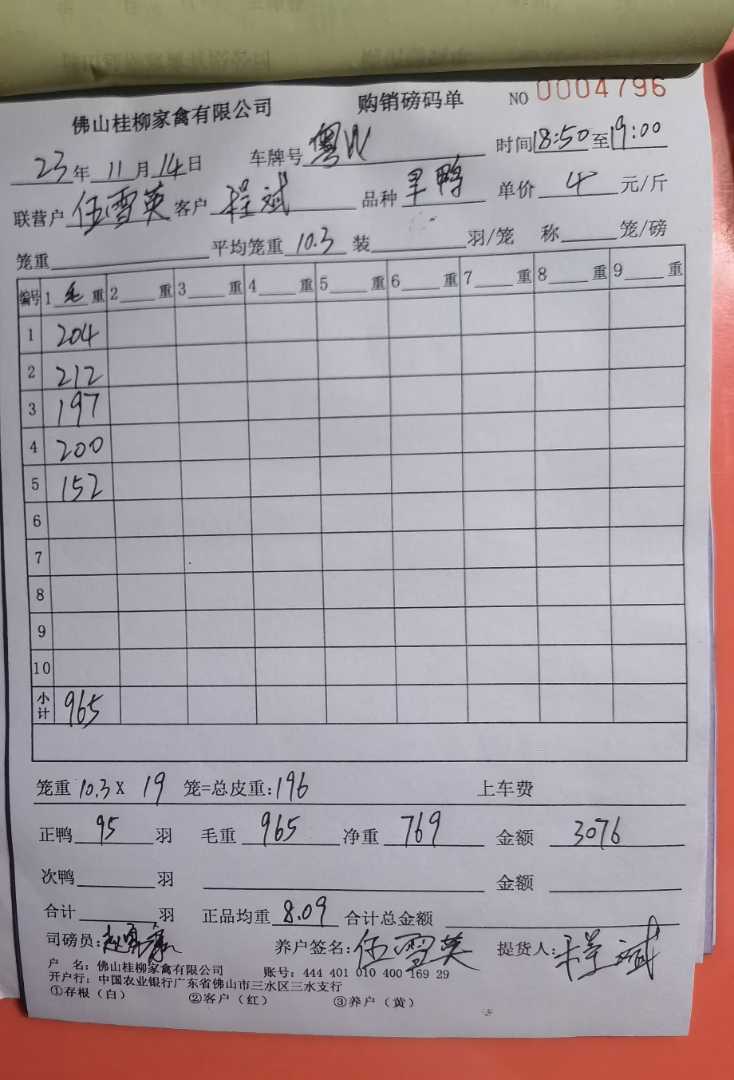 佛山桂柳家禽有限公司 购销磅码单 NO 0004796
23年 11月14日 车牌号 粤W 时间18:50至19:00
联营户 伍雪英 客户 程斌 品种 旱鸭 单价 4 元/斤
笼重 平均笼重 10.3 装 羽/笼 称 笼/磅
编号 1 毛 重 2 重 3 重 4 重 5 重 6 重 7 重 8 重 9 重
1 204
2 212
3 197
4 200
5 152
6
7
8
9
10
小计 965
笼重 10.3 X 19 笼=总皮重:196 上车费
正鸭 95 羽 毛重 965 净重 769 金额 3076
次鸭 羽 金额
合计 羽 正品均重 8.09 合计总金额
司磅员: 养户签名:伍雪英 提货人:程斌
户 名:佛山桂柳家禽有限公司 账号:444 401 010 400 169 29
开户行:中国农业银行广东省佛山市三水区三水支行
①存根(白) ②客户(红) ③养户(黄)